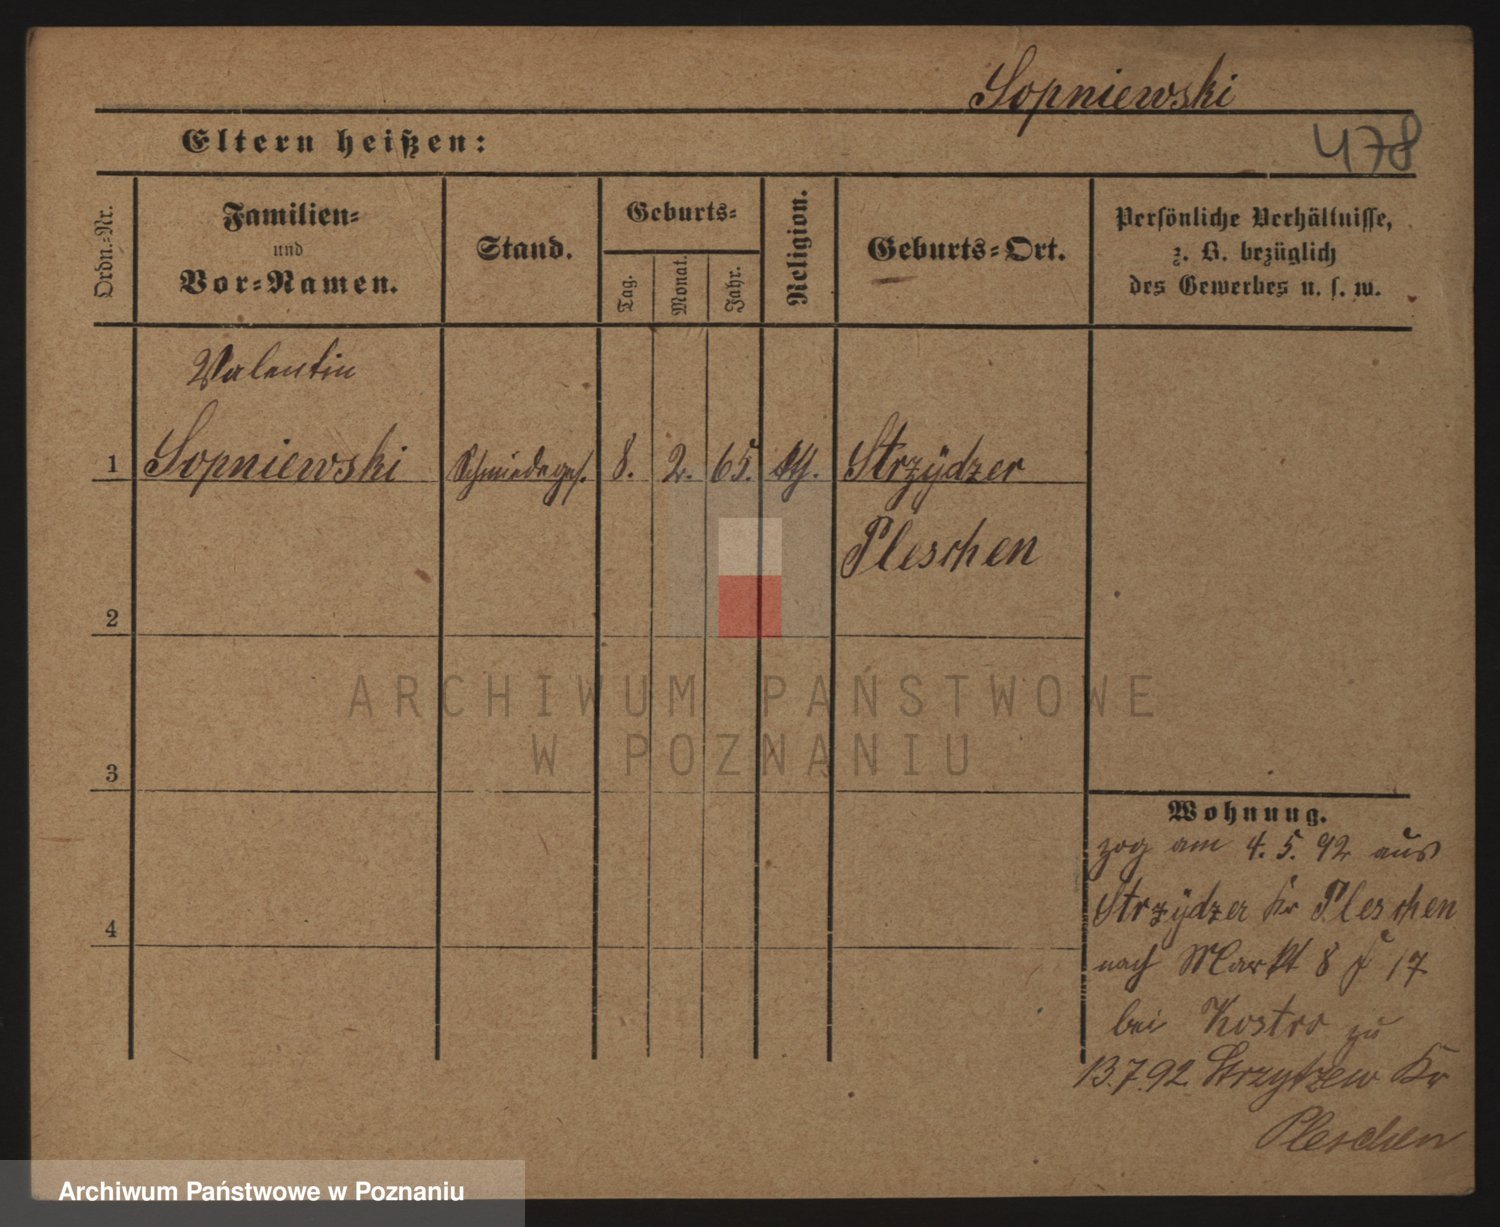 Sopniewski
478
Eltern heißen:
Ordn.-Nr.
Familien-
und
Vor-Namen.
Stand.
Geburts-
Tag.
Monat.
Jahr.
Religion.
Geburts-Ort.
Persönliche Verhältnisse,
z. B. bezüglich
des Gewerbes u. s. w.
Valentin
1 Sopniewski Schmiedeges. 8. 2. 65. Strzÿdzer
Pleschen
2
3
4
Wohnung.
zog am 4. 5. 92 aus
Strzÿdzer Kr Pleschen
nach Markt 8 17
bei Kostro zu
13.7.92. Strzytzew Kr
Pleschen
ARCHIWUM PAŃSTWOWE
W POZNANIU
Archiwum Państwowe w Poznaniu